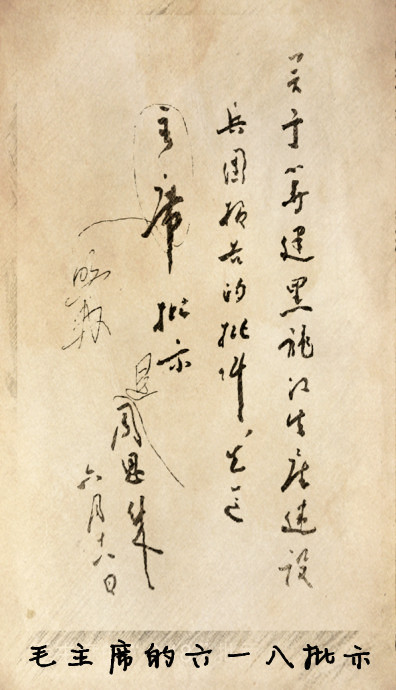 关于筹建黑龙江生产建设
兵团报告的批件,先送
主席批示
周恩来
六月十八日
照办
毛主席的六一八批示